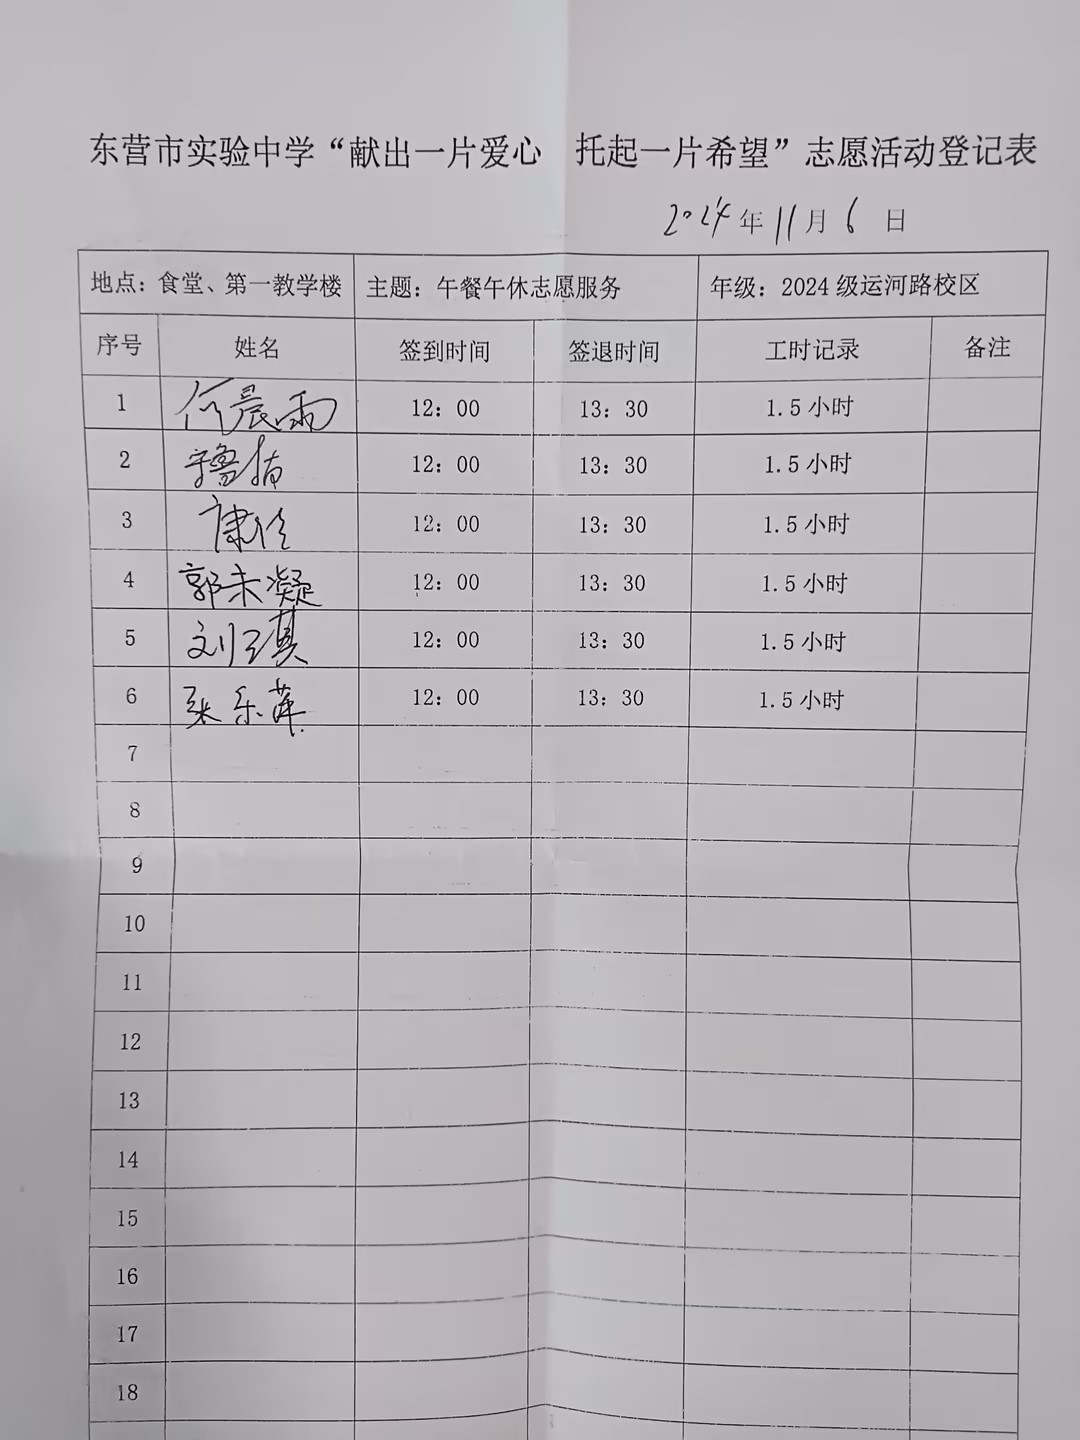 东营市实验中学“献出一片爱心 托起一片希望”志愿活动登记表
2024年11月6日
地点：食堂、第一教学楼 主题：午餐午休志愿服务 年级：2024级运河路校区
序号 姓名 签到时间 签退时间 工时记录 备注
1 何晨雨 12：00 13：30 1.5小时
2 12：00 13：30 1.5小时
3 康佳 12：00 13：30 1.5小时
4 郭未凝 12：00 13：30 1.5小时
5 刘子琪 12：00 13：30 1.5小时
6 张乐萍 12：00 13：30 1.5小时
7
8
9
10
11
12
13
14
15
16
17
18